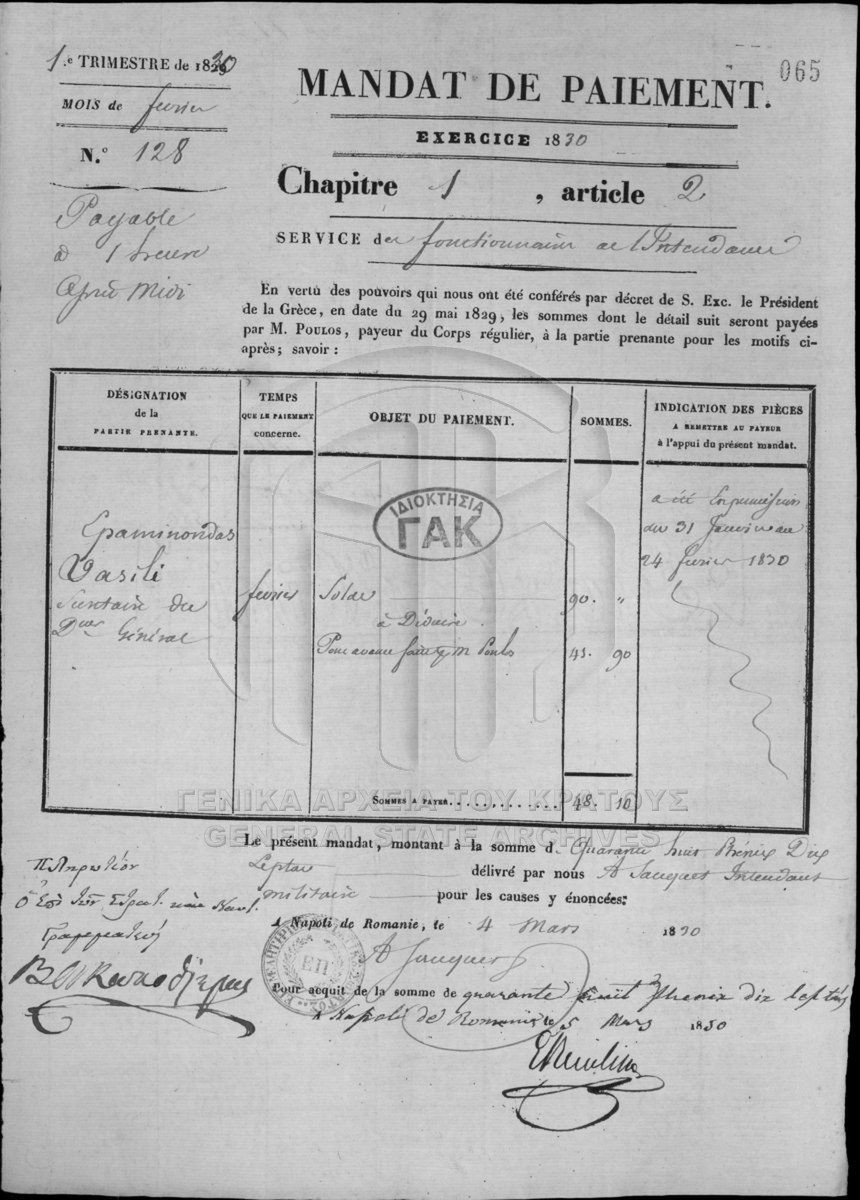 1.e TRIMESTRE de 1830
065
MOIS de février
N.º 128
MANDAT DE PAIEMENT.
EXERCICE 1830
Chapitre 1, article 2
SERVICE des fonctionnaires de l'Intendance
Payable
à 1 heure
Après Midi
En vertu des pouvoirs qui nous ont été conférés par décret de S. Exc. le Président
de la Grèce, en date du 29 mai 1829, les sommes dont le détail suit seront payées
par M. POULOS, payeur du Corps régulier, à la partie prenante pour les motifs ci-
après; savoir :
DÉSIGNATION
de la
PARTIE PRENANTE.
TEMPS
QUE LE PAIEMENT
concerne.
OBJET DU PAIEMENT.
SOMMES.
INDICATION DES PIÈCES
A REMETTRE AU PAYEUR
à l'appui du présent mandat.
ΙΔΙΟΚΤΗΣΙΑ
ΓΑΚ
Epaminondas
Vasili
du
Général
février
Solde 90. "
à Déduire
Pour avance M Poulos 41. 90
a été
du 31 Janvier au
24 février 1830
SOMMES A PAYER........... 48. 10
ΓΕΝΙΚΑ ΑΡΧΕΙΑ ΤΟΥ ΚΡΑΤΟΥΣ
GENERAL STATE ARCHIVES
Le présent mandat, montant à la somme d. Quarante huit Phénix Dix
Leptas délivré par nous Intendant
militaire pour les causes y énoncées:
A Napoli de Romanie, le 4 Mars 1830
Πληρωτέον
Γραμματεύς
ΕΠ
Pour acquit de la somme de quarante huit Phenix dix leptas
A Napoli de Romanie le 5 Mars 1830